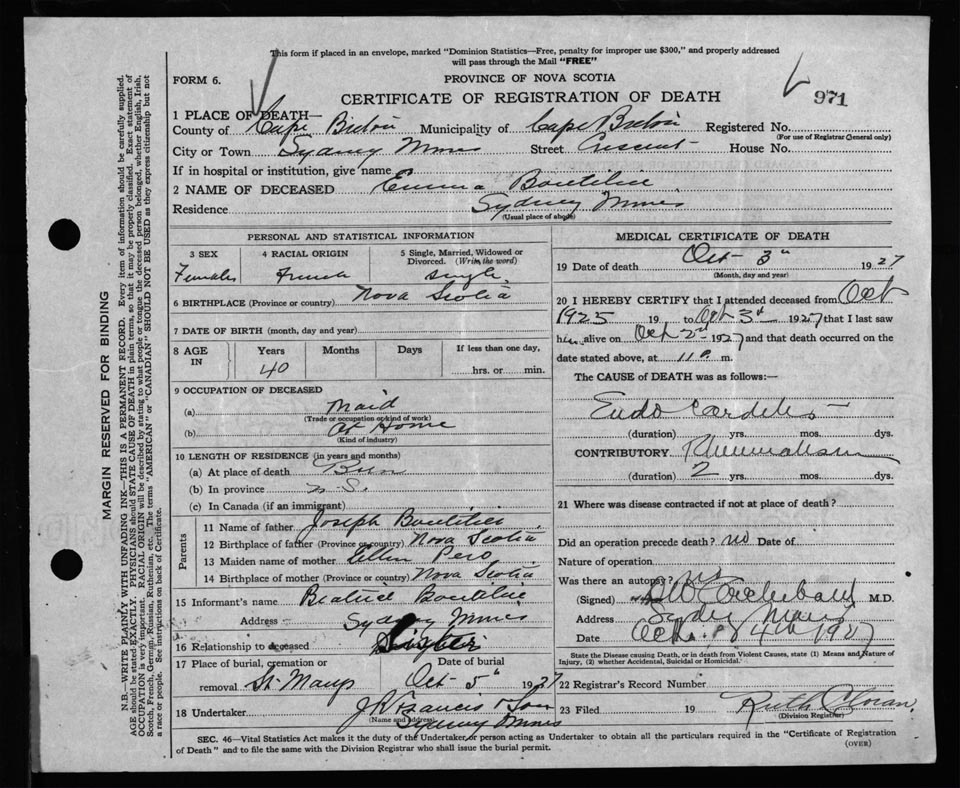 This form if placed in an envelope, marked "Dominion Statistics—Free, penalty for improper use $300," and properly addressed
will pass through the Mail "FREE"
FORM 6.
PROVINCE OF NOVA SCOTIA
CERTIFICATE OF REGISTRATION OF DEATH
971
1 PLACE OF DEATH—
County of Cape Breton Municipality of Cape Breton Registered No.
(For use of Registrar General only)
City or Town Sydney Mines Street Crescent House No.
If in hospital or institution, give name
2 NAME OF DECEASED Emma Boutilier
Residence Sydney Mines
(Usual place of abode)
PERSONAL AND STATISTICAL INFORMATION
3 SEX
Female
4 RACIAL ORIGIN
French
5 Single, Married, Widowed or Divorced. (Write the word)
Single
6 BIRTHPLACE (Province or country) Nova Scotia
7 DATE OF BIRTH (month, day and year)
8 AGE IN
Years Months Days If less than one day,
40
hrs. or min.
9 OCCUPATION OF DECEASED
(a) Maid
(Trade or occupation or kind of work)
(b) At Home
(Kind of industry)
10 LENGTH OF RESIDENCE (in years and months)
(a) At place of death
(b) In province N.S.
(c) In Canada (if an immigrant)
Parents
11 Name of father Joseph Boutilier
12 Birthplace of father (Province or country) Nova Scotia
13 Maiden name of mother Ellen Pero
14 Birthplace of mother (Province or country) Nova Scotia
15 Informant's name Beatrice Boutilier
Address Sydney Mines
16 Relationship to deceased
17 Place of burial, cremation or
removal St Marys
Date of burial
Oct 5" 1927
18 Undertaker J R Francis & Son
(Name and address)
Sydney Mines
MEDICAL CERTIFICATE OF DEATH
19 Date of death Oct 3" 1927
(Month, day and year)
20 I HEREBY CERTIFY that I attended deceased from Oct
1925 19 to Oct 3rd 1927 that I last saw
h alive on Oct 2nd 1927 and that death occurred on the
date stated above, at 11 m.
The CAUSE of DEATH was as follows:—
Endo Carditis
(duration) yrs. mos. dys.
CONTRIBUTORY Rheumatism
(duration) 2 yrs. mos. dys.
21 Where was disease contracted if not at place of death?
Did an operation precede death? no Date of
Nature of operation
Was there an autopsy?
(Signed) M.D.
Address Sydney Mines
Date Oct 4th 1927
State the Disease causing Death, or in death from Violent Causes, state (1) Means and Nature of
Injury, (2) whether Accidental, Suicidal or Homicidal.
22 Registrar's Record Number
23 Filed 19 Ruth
(Division Registrar)
SEC. 46—Vital Statistics Act makes it the duty of the Undertaker or person acting as Undertaker to obtain all the particulars required in the "Certificate of Registration
of Death" and to file the same with the Division Registrar who shall issue the burial permit.
(OVER)
MARGIN RESERVED FOR BINDING
N.B.—WRITE PLAINLY WITH UNFADING INK—THIS IS A PERMANENT RECORD. Every item of information should be carefully supplied.
AGE should be stated EXACTLY. PHYSICIANS should STATE CAUSE OF DEATH in plain terms, so that it may be properly classified. Exact statement of
OCCUPATION is very important. RACIAL ORIGIN will be described by stating to what people or tongue the deceased person belonged, whether English, Irish,
Scotch, French, German, Russian, Ruthenian, etc. The terms "AMERICAN" or "CANADIAN" SHOULD NOT BE USED as they express citizenship but not
a race or people. See instructions on back of Certificate.